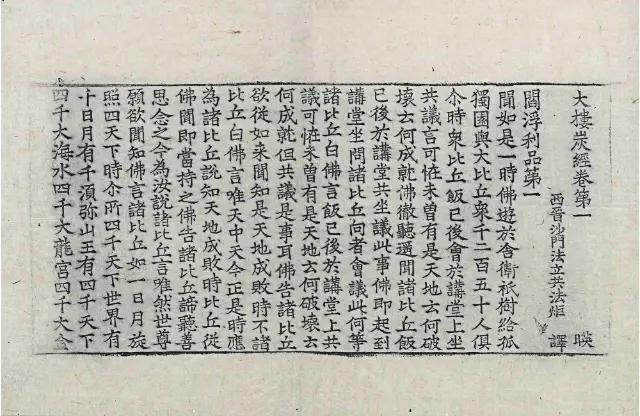 大樓炭經卷第一 暎
西晉沙門法立共法炬 譯
閻浮利品第一
聞如是一時佛遊於舍衛祇樹給孤
獨園與大比丘衆千二百五十人俱
尒時衆比丘飯已後會於講堂上坐
共議言可恠未曽有是天地云何破
壞云何成就佛徹聽遥聞諸比丘飯
已後於講堂共坐議此事佛即起到
講堂坐問諸比丘向者會議此何等
諸比丘白佛言飯已後於講堂上共
議可恠未曽有是天地云何破壞云
何成就但共議是事耳佛告諸比丘
欲從如來聞知是天地成敗時不諸
比丘白佛言唯天中天今正是時應
為諸比丘說知天地成敗時比丘從
佛聞即當持之佛告諸比丘諦聽善
思念之今為汝說諸比丘言唯然世尊
願欲聞知佛言諸比丘如一日月旋
照四天下時尒所四千天下世界有
千日月有千湏弥山王有四千天下
四千大海水四千大龍宮四千大金